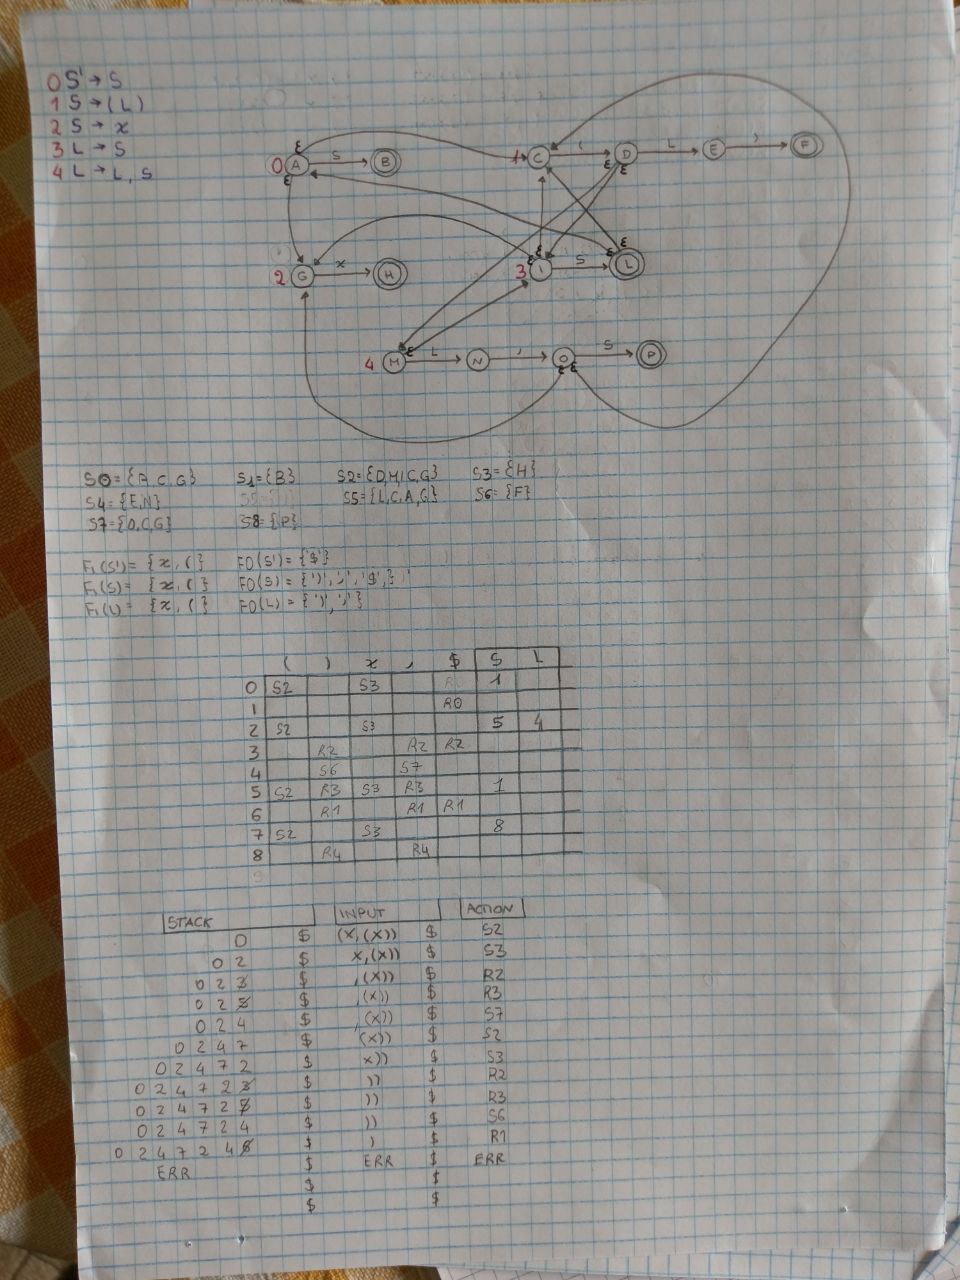 0 S' → S
1 S → (L)
2 S → x
3 L → S
4 L → L, S
0 A S B 1 C ( D L E ) F
ε ε ε ε
2 G x H 3 I S L
ε ε ε ε
4 M L N , O S P
ε ε ε
S0={A,C,G} S1={B} S2={D,M,I,C,G} S3={H}
S4={E,N} S5={L,C,A,G} S6={F}
S7={O,C,G} S8={P}
Fi(S')= {x, (} FO(S')={'$'}
Fi(S)= {x, (} FO(S)={')',',','$',}
Fi(L)= {x, (} FO(L)={')',','}
( ) x , $ S L
0 S2 S3 R0 1
1 R0
2 S2 S3 5 4
3 R2 R2 R2
4 S6 S7
5 S2 R3 S3 R3 1
6 R1 R1 R1
7 S2 S3 8
8 R4 R4
9
STACK INPUT ACTION
0 $ (x,(x)) $ S2
0 2 $ x,(x)) $ S3
0 2 3 $ ,(x)) $ R2
0 2 5 $ ,(x)) $ R3
0 2 4 $ ,(x)) $ S7
0 2 4 7 $ (x)) $ S2
0 2 4 7 2 $ x)) $ S3
0 2 4 7 2 3 $ )) $ R2
0 2 4 7 2 5 $ )) $ R3
0 2 4 7 2 4 $ )) $ S6
0 2 4 7 2 4 6 $ ) $ R1
ERR $ ERR $ ERR
$ $
$ $